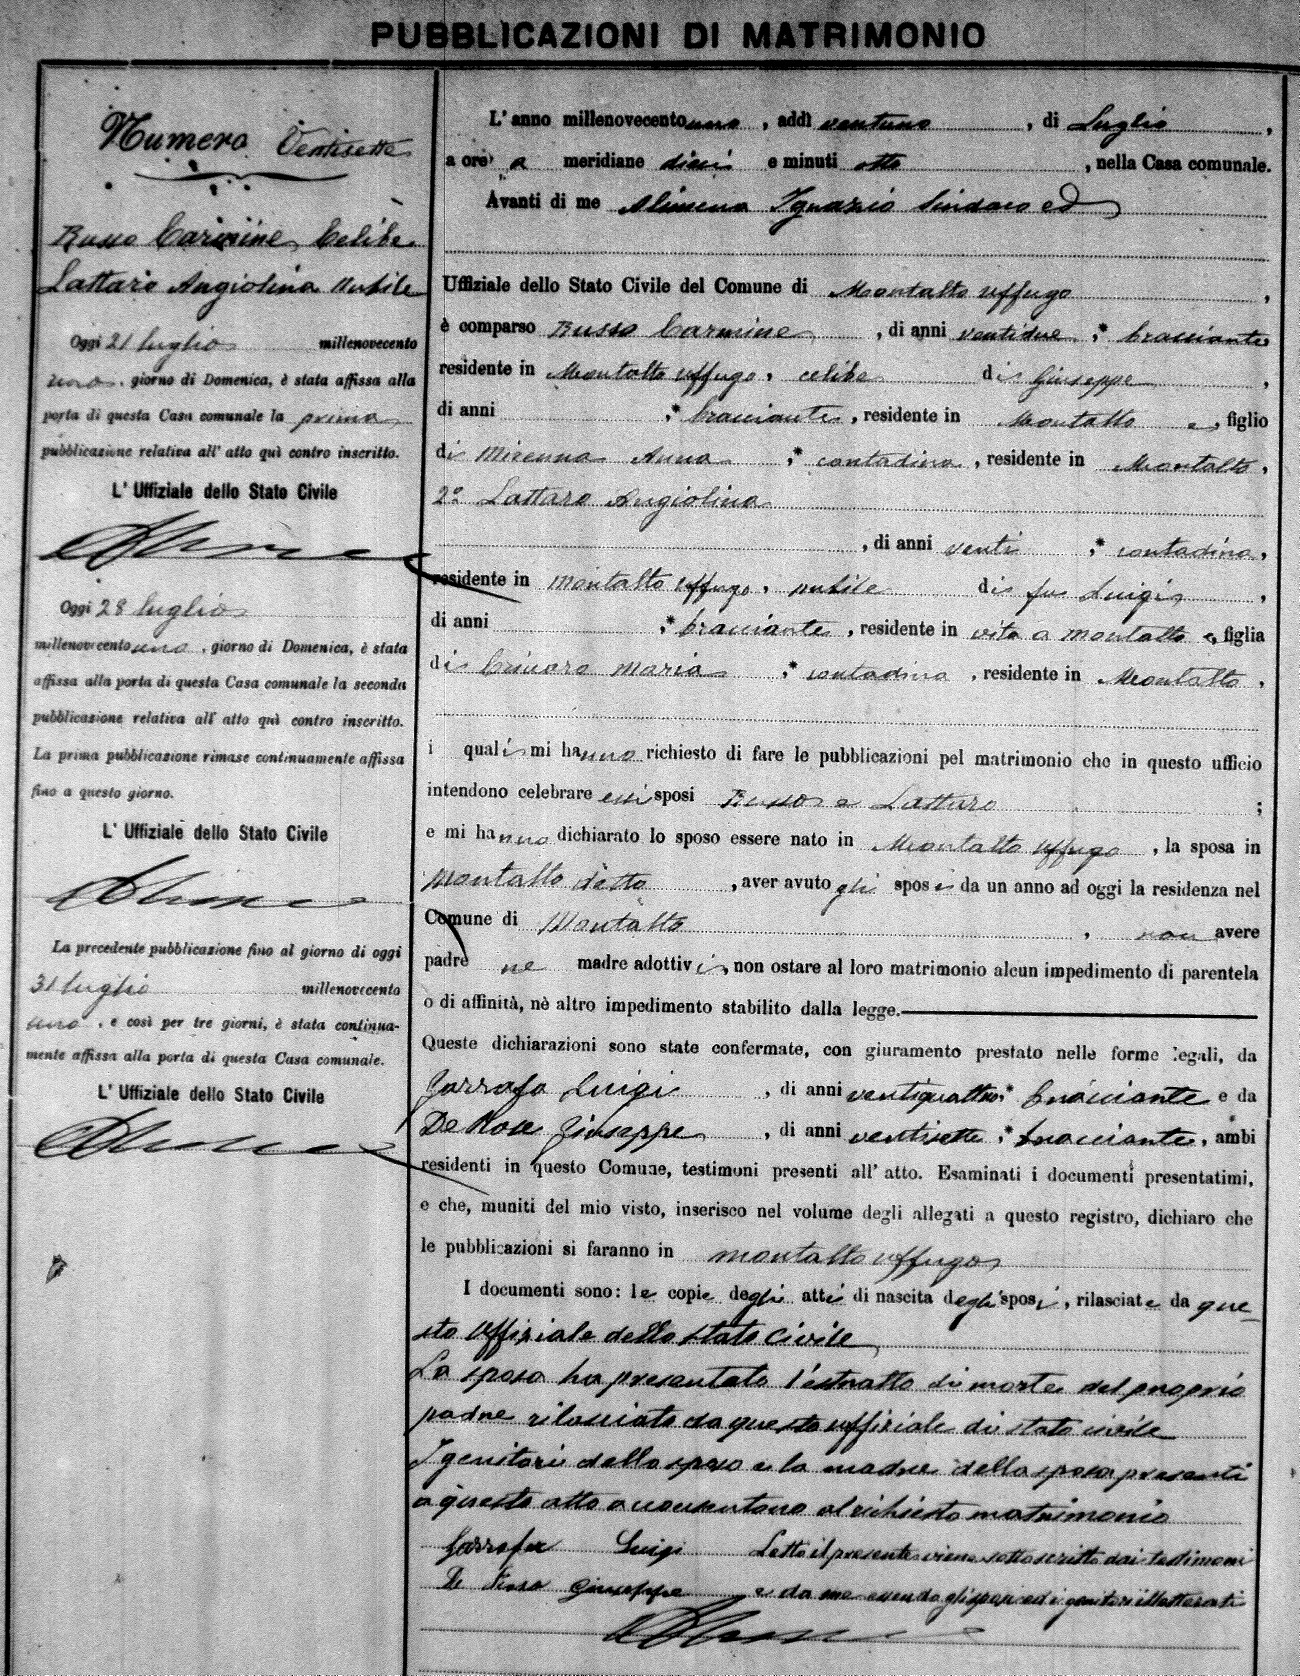 PUBBLICAZIONI DI MATRIMONIO
Numero Ventisette
Russo Carmine, Celibe
Lattaro Angiolina Nubile
Oggi 21 luglio millenovecento
uno, giorno di Domenica, è stata affissa alla
porta di questa Casa comunale la prima
pubblicazione relativa all' atto quì contro inscritto.
L' Uffiziale dello Stato Civile
Oggi 28 luglio
millenovecento uno, giorno di Domenica, è stata
affissa alla porta di questa Casa comunale la seconda
pubblicazione relativa all' atto quì contro inscritto.
La prima pubblicazione rimase continuamente affissa
fino a questo giorno.
L' Uffiziale dello Stato Civile
La precedente pubblicazione fino al giorno di oggi
31 luglio millenovecento
uno, e così per tre giorni, è stata continua-
mente affissa alla porta di questa Casa comunale.
L' Uffiziale dello Stato Civile
L' anno millenovecento uno, addì ventuno, di Luglio,
a ore a meridiane dieci e minuti otto, nella Casa comunale.
Avanti di me Alimena Ignazio Sindaco ed
Uffiziale dello Stato Civile del Comune di Montalto Uffugo,
è comparso Russo Carmine, di anni ventidue, * bracciante
residente in Montalto Uffugo, celibe di Giuseppe,
di anni , * bracciante, residente in Montalto e, figlio
di Mirenna Anna, * contadina, residente in Montalto,
2º Lattaro Angiolina
, di anni venti, * contadina,
residente in Montalto Uffugo, nubile di fu Luigi,
di anni , * bracciante, residente in vita a Montalto e, figlia
di Crivaro Maria, * contadina, residente in Montalto,
i quali mi hanno richiesto di fare le pubblicazioni pel matrimonio che in questo ufficio
intendono celebrare essi sposi Russo e Lattaro;
e mi hanno dichiarato lo sposo essere nato in Montalto Uffugo, la sposa in
Montalto detto, aver avuto gli sposi da un anno ad oggi la residenza nel
Comune di Montalto, non avere
padre ne madre adottivi, non ostare al loro matrimonio alcun impedimento di parentela
o di affinità, nè altro impedimento stabilito dalla legge.
Queste dichiarazioni sono state confermate, con giuramento prestato nelle forme legali, da
Garrafa Luigi, di anni ventiquattro, * bracciante e da
De Rose Giuseppe, di anni ventisette, * bracciante, ambi
residenti in questo Comune, testimoni presenti all' atto. Esaminati i documenti presentatimi,
e che, muniti del mio visto, inserisco nel volume degli allegati a questo registro, dichiaro che
le pubblicazioni si faranno in Montalto Uffugo
I documenti sono: le copie degli atti di nascita degli sposi, rilasciate da que
sto Uffiziale dello stato Civile
La sposa ha presentato l'estratto di morte del proprio
padre rilasciato da questo uffiziale di stato civile
I genitori dello sposo e la madre della sposa presenti
a questo atto acconsentono al richiesto matrimonio
Garrafa Luigi Letto il presente viene sottoscritto dai testimoni
De Rose Giuseppe e da me essendo gli sposi ed i genitori illetterati